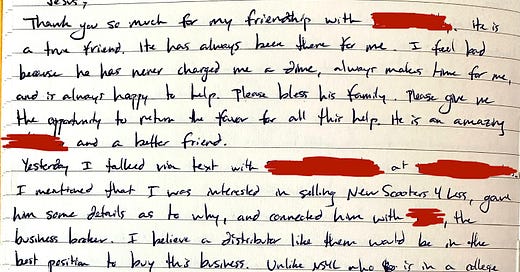 Jesus,
Thank you so much for my friendship with . He is
a true friend. He has always been there for me. I feel bad
because he has never charged me a dime, always makes time for me,
and is always happy to help. Please bless his family. Please give me
the opportunity to return the favor for all this help. He is an amazing
and a better friend.
Yesterday I talked via text with at
I mentioned that I was interested in selling New Scooters 4 Less, gave
him some details as to why, and connected him with , the
business broker. I believe a distributor like them would be in the
best position to buy this business. Unlike NS4L who is in a college